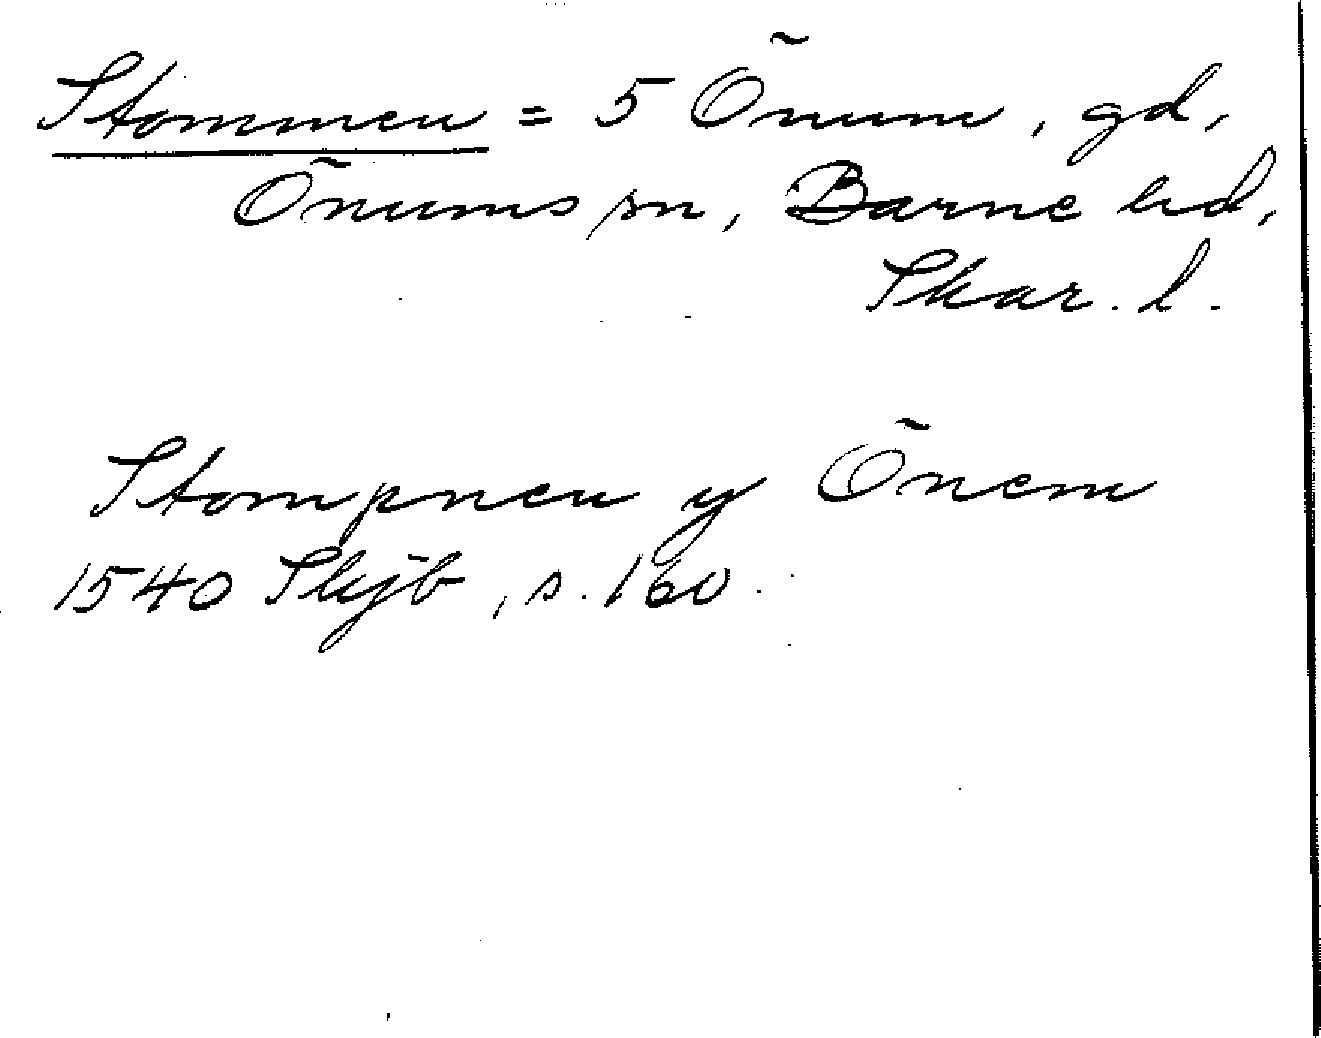 Stommen = 5 Önum, gd,
Önums sn, Barne hd,
Skar. l.
Stompnen y Önem
1540 Skjb, s. 160.